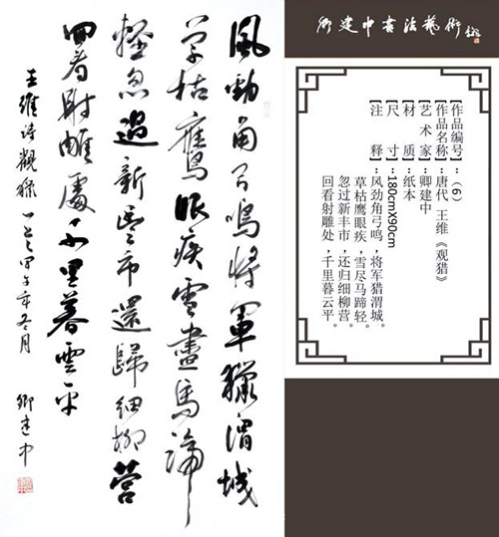 卿建中书法藝術
【作品编号】：（6）
【作品名称】：唐代 王维《观猎》
【艺 术 家】：卿建中
【材　　质】：纸本
【尺　　寸】：180cmX90cm
【注　　释】：风劲角弓鸣，将军猎渭城。
草枯鹰眼疾，雪尽马蹄轻。
忽过新丰市，还归细柳营。
回看射雕处，千里暮云平。
風勁角弓鳴將軍獵渭城
草枯鷹眼疾雪盡馬蹄
輕忽過新豐市還歸細柳營
回看射雕處千里暮雲平
王維诗觀獵一首甲年冬月 卿建中